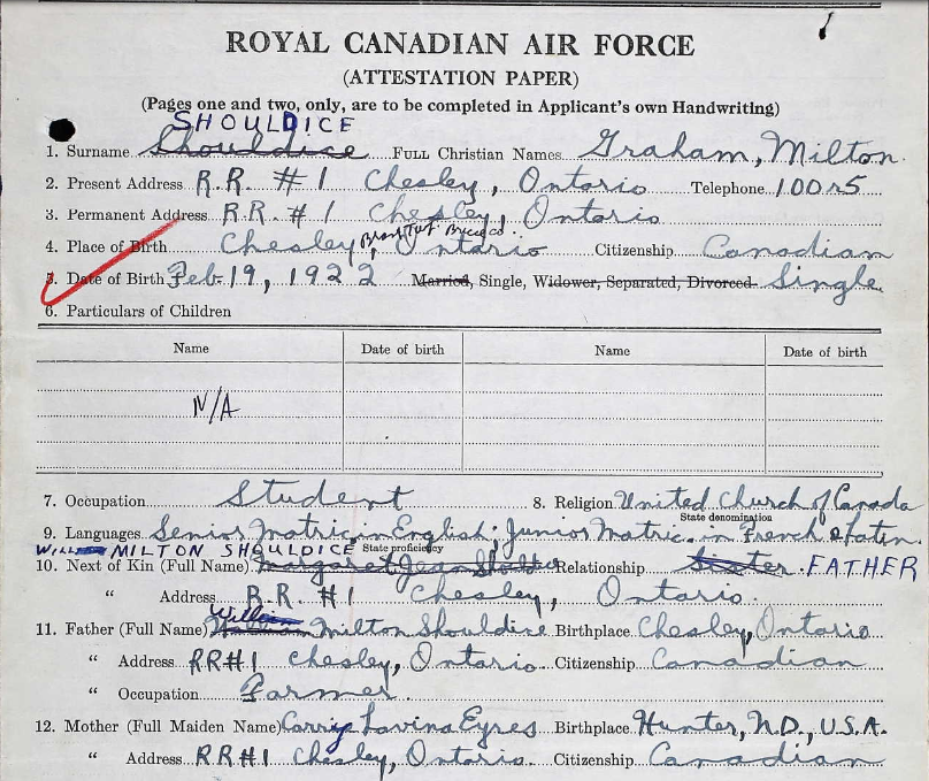 ROYAL CANADIAN AIR FORCE
(ATTESTATION PAPER)
(Pages one and two, only, are to be completed in Applicant's own Handwriting)
SHOULDICE
1. Surname Shouldice FULL Christian Names Graham, Milton.
2. Present Address R.R. #1 Chesley, Ontario Telephone 100r5
3. Permanent Address R.R. #1 Chesley, Ontario
4. Place of Birth Chesley, Ontario Citizenship Canadian
5. Date of Birth Feb. 19, 1922 Married, Single, Widower, Separated, Divorced Single
6. Particulars of Children
Name Date of birth Name Date of birth
N/A
7. Occupation Student 8. Religion United Church of Canada
State denomination
9. Languages Senior Matric. in English; Junior Matric. in French & Latin.
State proficiency
MILTON SHOULDICE
10. Next of Kin (Full Name) Margaret Jean Relationship Sister FATHER
" Address R.R. #1 Chesley, Ontario.
William
11. Father (Full Name) Milton Shouldice Birthplace Chesley, Ontario
" Address RR#1 Chesley, Ontario. Citizenship Canadian
" Occupation Farmer.
12. Mother (Full Maiden Name) Carrie Lavina Eyres Birthplace Hunter, N.D., U.S.A.
" Address RR#1 Chesley, Ontario. Citizenship Canadian